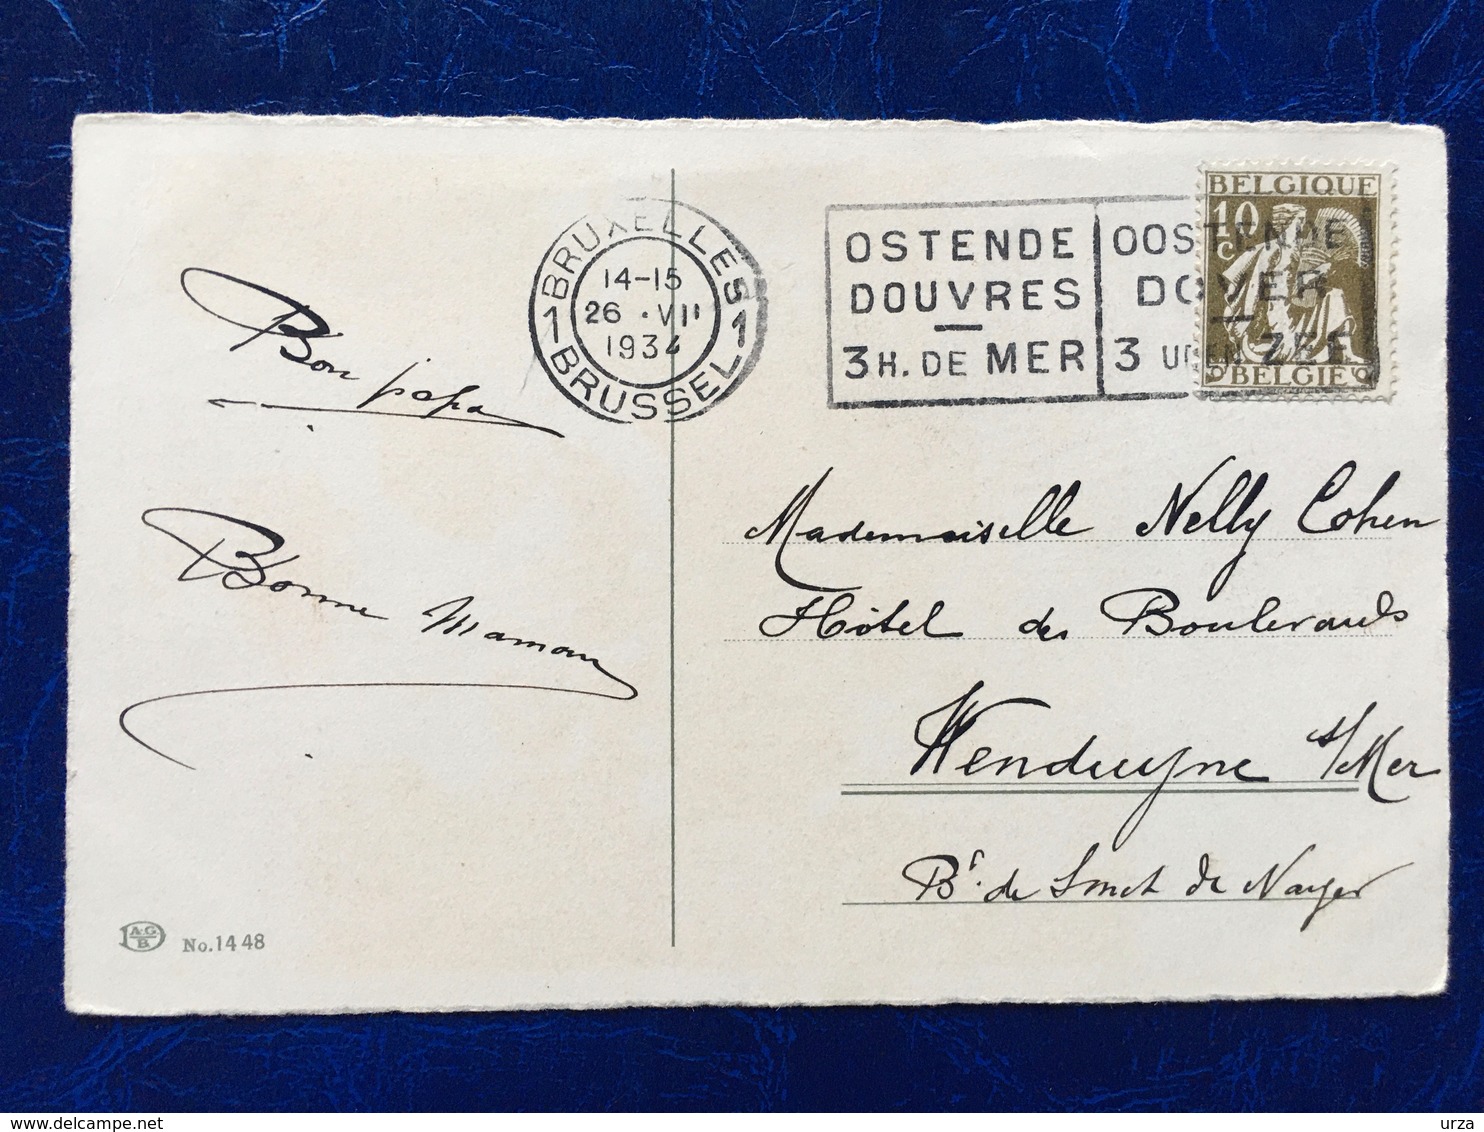 BELGIQUE
10
C
BELGIE
1 BRUXELLES 1
14-15
26 · VII
1934
BRUSSEL
OSTENDE
DOUVRES
—
3 H. DE MER
OOSTENDE
DOVER
—
3 UREN ZEE
Bon papa
Bonne Maman
Mademoiselle Nelly Cohen
Hôtel des Boulevards
Wenduyne s/Mer
Bd. de Smet de Nayer
A.G.
B
No. 1448
urza